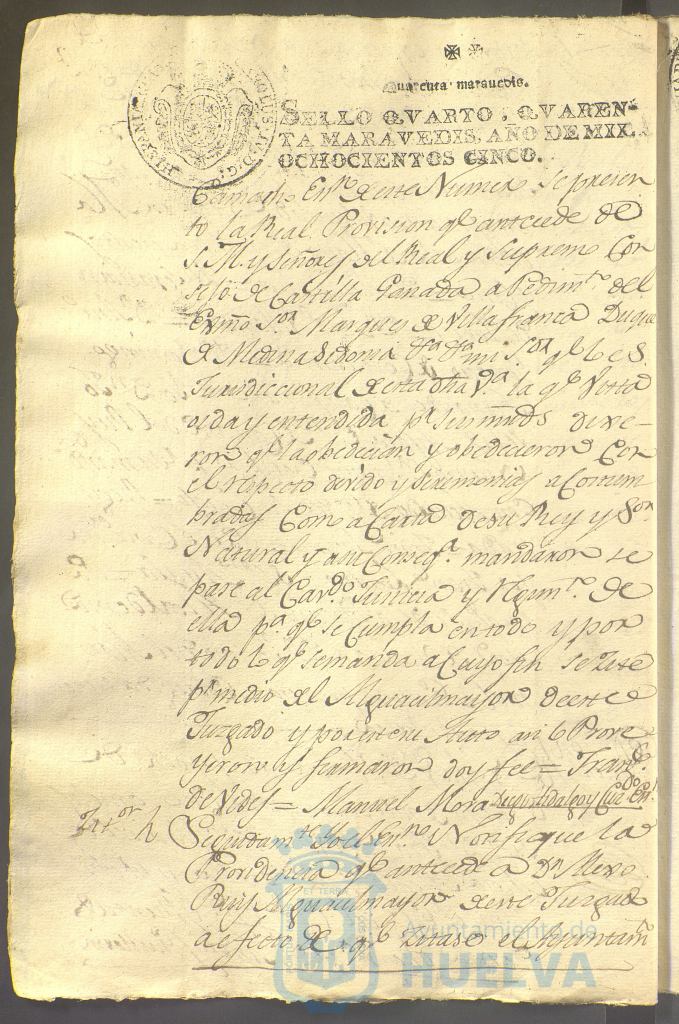 Quarenta maravedis.
SELLO QVARTO, QVAREN-
TA MARAVEDIS, AÑO DE MIL
OCHOCIENTOS CINCO.
CAROLUS IV D. G. HISPANIAR
Essno de este Numer se presen
to la Real Provision qe antecede de
S. M. y Señores del Real y Supremo Con
sejo de Castilla Ganada a Pedimto del
Exmo Sor Marques de Villafranca Duque
de Medina Sidonia mi Sor qe lo es
Jurisdiccional de esta dha Va la qe Vista
oida y entendida pr sus mrds dixe-
ron qe la obedecian y obedecieron Con
el respecto devido y seremonias acostum
bradas Como a Carta de su Rey y Sor
Natural y en su Conseqa mandaron se
pase al Cavdo Justicia y Regimto de
ella pa qe se Cumpla en todo y por
todo lo qe se manda a Cuyo fin se Zite
pr medio del Alguacil mayor de este
Juzgado y por este su Auto asi lo Prove
yeron y firmaron doy fee = Franco
de Vides = Manuel Mora
Seguidamte Yo el Esno Notifique la
Providencia qe antecede a Dn
Ruis Alguacil mayor de este Juzgado
a efecto de qe Zitase el Ayuntamto
Ayuntamiento de
HUELVA